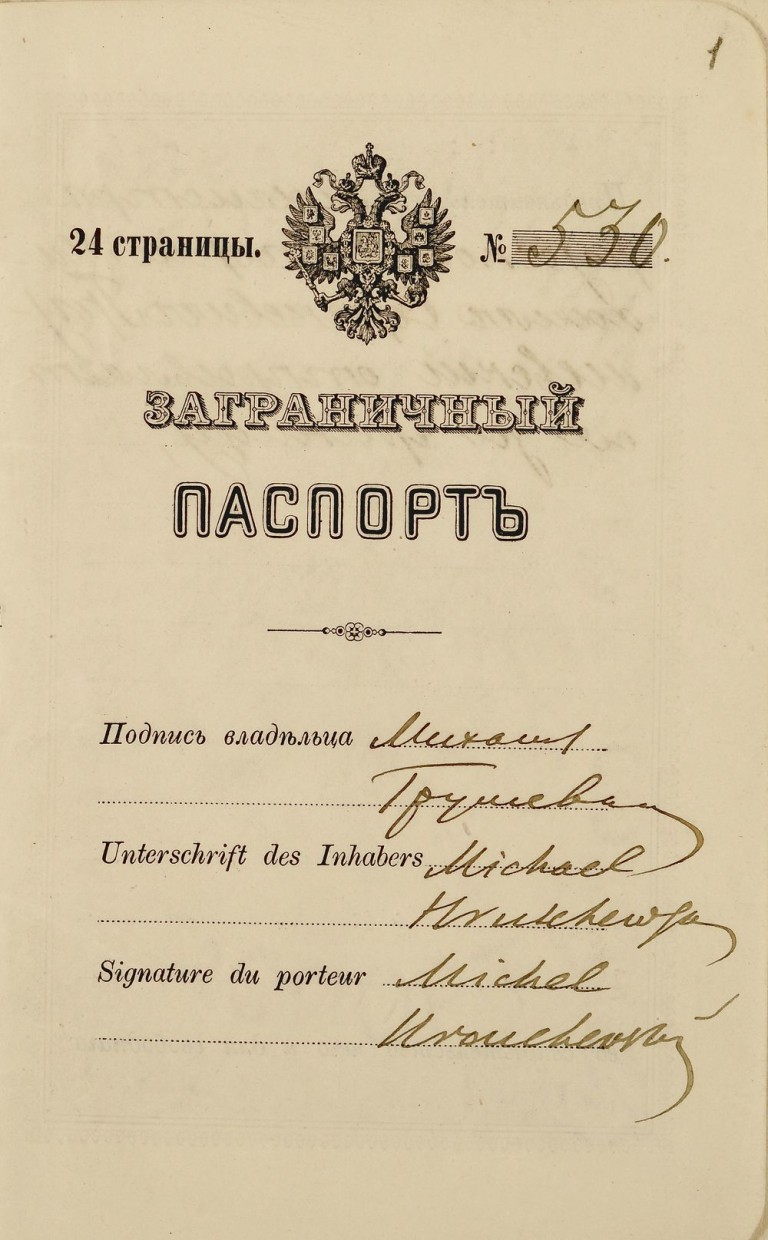 1
24 страницы.
№ 530.
ЗАГРАНИЧНЫЙ
ПАСПОРТЪ
Подпись владѣльца Михаил
Грушевский
Unterschrift des Inhabers Michael
Signature du porteur Michel